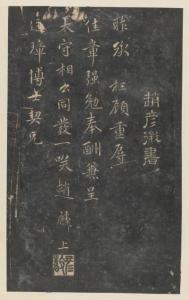 趙彦徵書
昨欲 枉顧重辱
佳章强勉奉酬兼呈
長守相公同發一笑趙 上
彦璋博士契兄